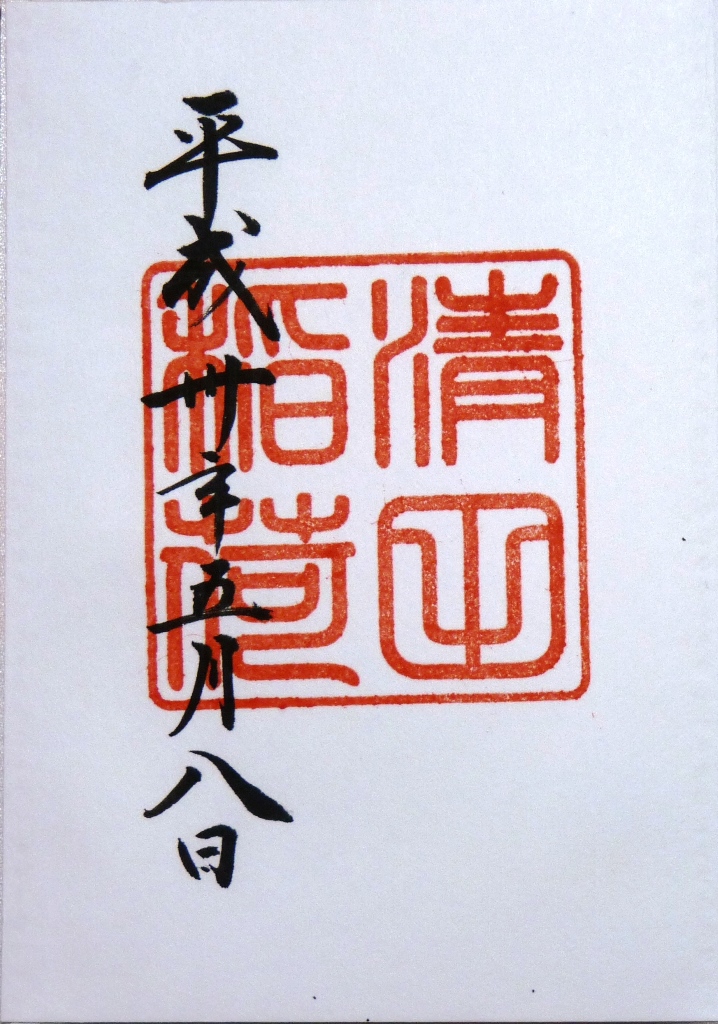 清正
稲荷
平成卅年五月八日